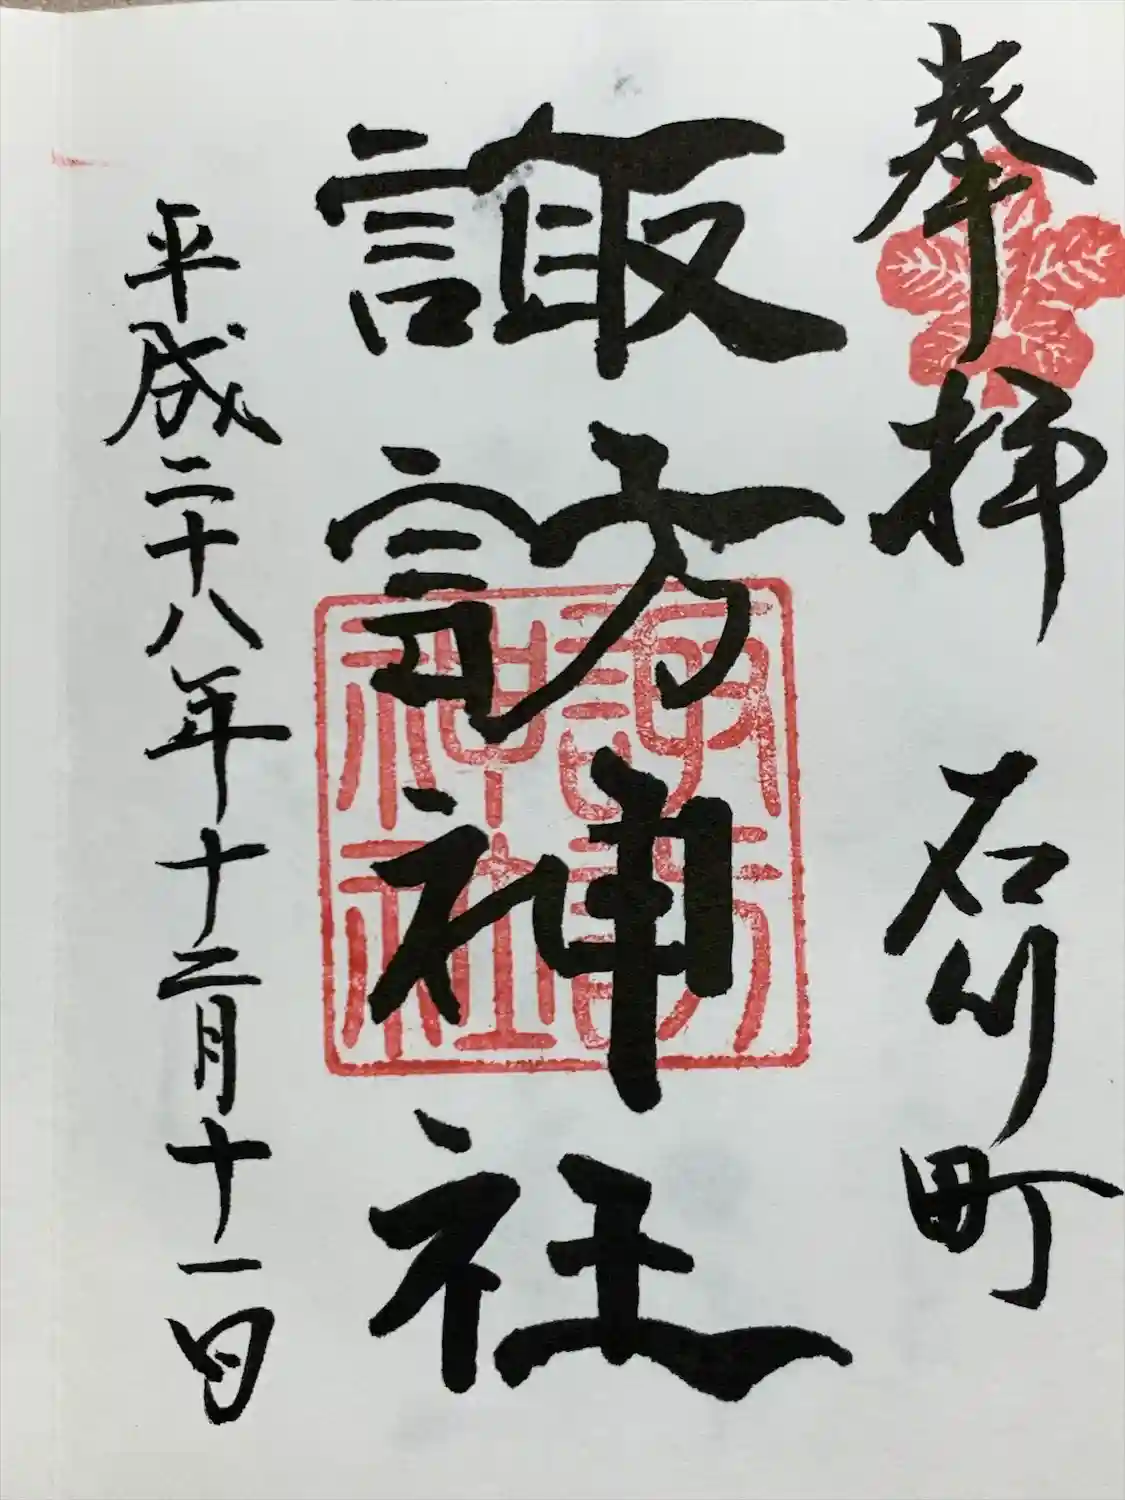 奉拝　石川町
諏訪神社
諏訪
神社
平成二十八年十二月十一日